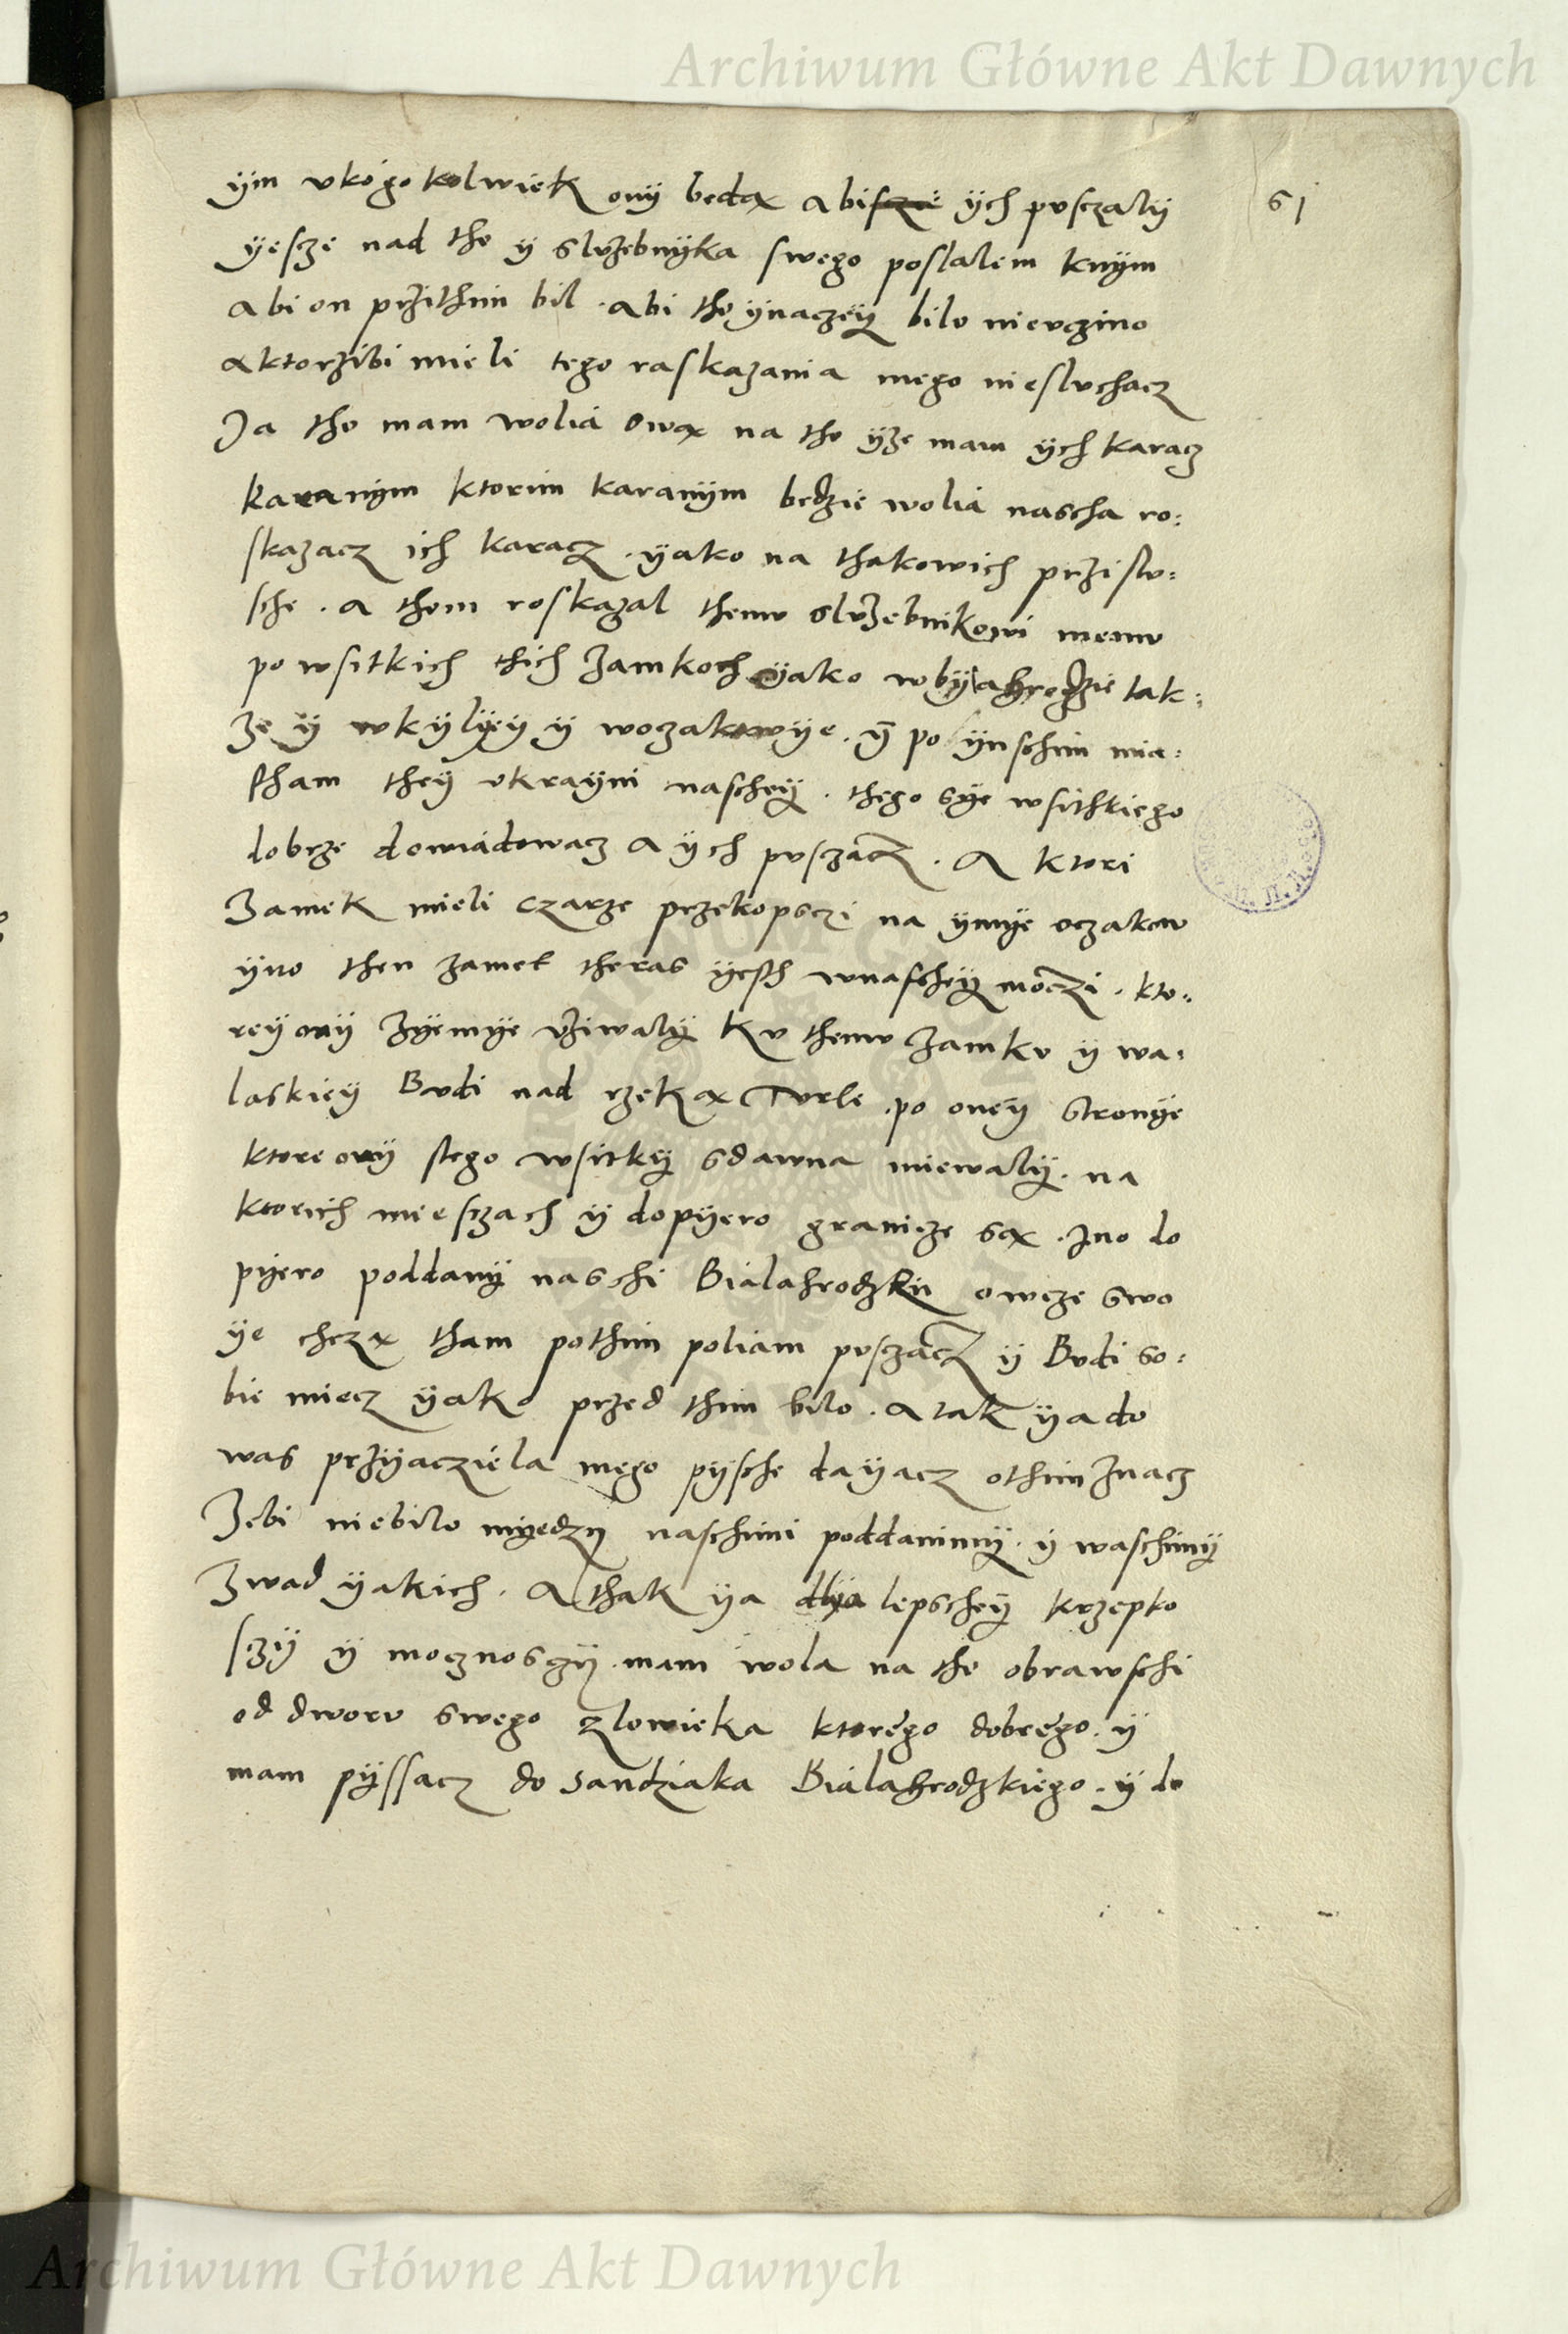 Archiwum Główne Akt Dawnych
61
ÿm vkogo kolwiek onÿ bedą abi ÿch pvsczalÿ
ÿescze nad tho ÿ slvzebnÿka swego poslalem knÿm
abi on przithim bil . abi tho ÿnaczeÿ bilo nievczino
aktorzibi mieli tego raskazania mego nieslvchacz
Ja tho mam wolia ową na tho ÿze mam ÿch karacz
karanÿm ktorim karanÿm bedzie wolia nascha ro:
skazacz ich karacz . ÿako na thakowich przislv:
sche . a them roskazal themv slvzebnikowi memv
po wsitkich thich zamkoch ÿako wbÿalhrodzie tak:
ze ÿ wkÿlÿeÿ ÿ woczakowÿe . ÿ po ÿnschim mia:
stham theÿ vkraÿni nascheÿ . thego sÿe wsithkiego
dobrze dowiadowacz a ÿch pvszacz . A ktori
zamek mieli czarze przekopsczi na ÿmÿe oczakow
ÿno then zamek theras ÿesth wnascheÿ moczi . kto:
reÿ onÿ zÿemÿe vziwalÿ kv themv zamkv ÿ wa:
laskieÿ Bvdi nad rzeką Tvrle . po oneÿ stronÿe
ktore onÿ stego wsitkÿ sdawna miewalÿ . na
ktorich miesczach ÿ dopÿero granicze są . Jno do
pÿero poddanÿ naschi Bialahrodzkÿ owcze swo
ÿe chczą tham pothim poliam pvszacz ÿ Bvdi so:
bie miecz ÿako przed thim bilo . a tak ÿa do
was przÿacziela mego pÿsche daÿacz othim znacz
zebi niebilo mÿedzÿ naschimi poddanimÿ . ÿ waschimÿ
zwad ÿakich . A thak ÿa dlÿa lepscheÿ krzepko
sczÿ ÿ mocznosczÿ . mam wola na tho obrawschi
od dworv swego czlowieka ktorego dobrego . ÿ
mam pÿssacz do sandziaka Bialahrodzkiego . ÿ do
Archiwum Główne Akt Dawnych